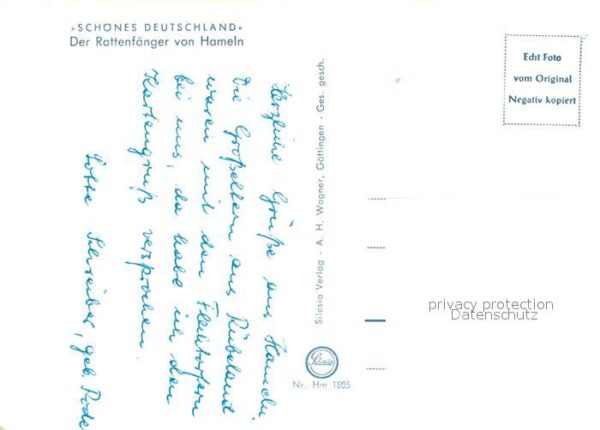 »SCHÖNES DEUTSCHLAND«
Der Rattenfänger von Hameln
Herzliche Grüße aus Hameln.
Die Großeltern aus Rübeland
waren mit den
bei uns, da habe ich den
Kartengruß versprochen.
Lotte Schreiber, geb. Rode
Silesia Verlag - A. H. Wagner, Göttingen - Ges. gesch.
Silesia
Nr. Hm 1805
Echt Foto
vom Original
Negativ kopiert
privacy protection
Datenschutz